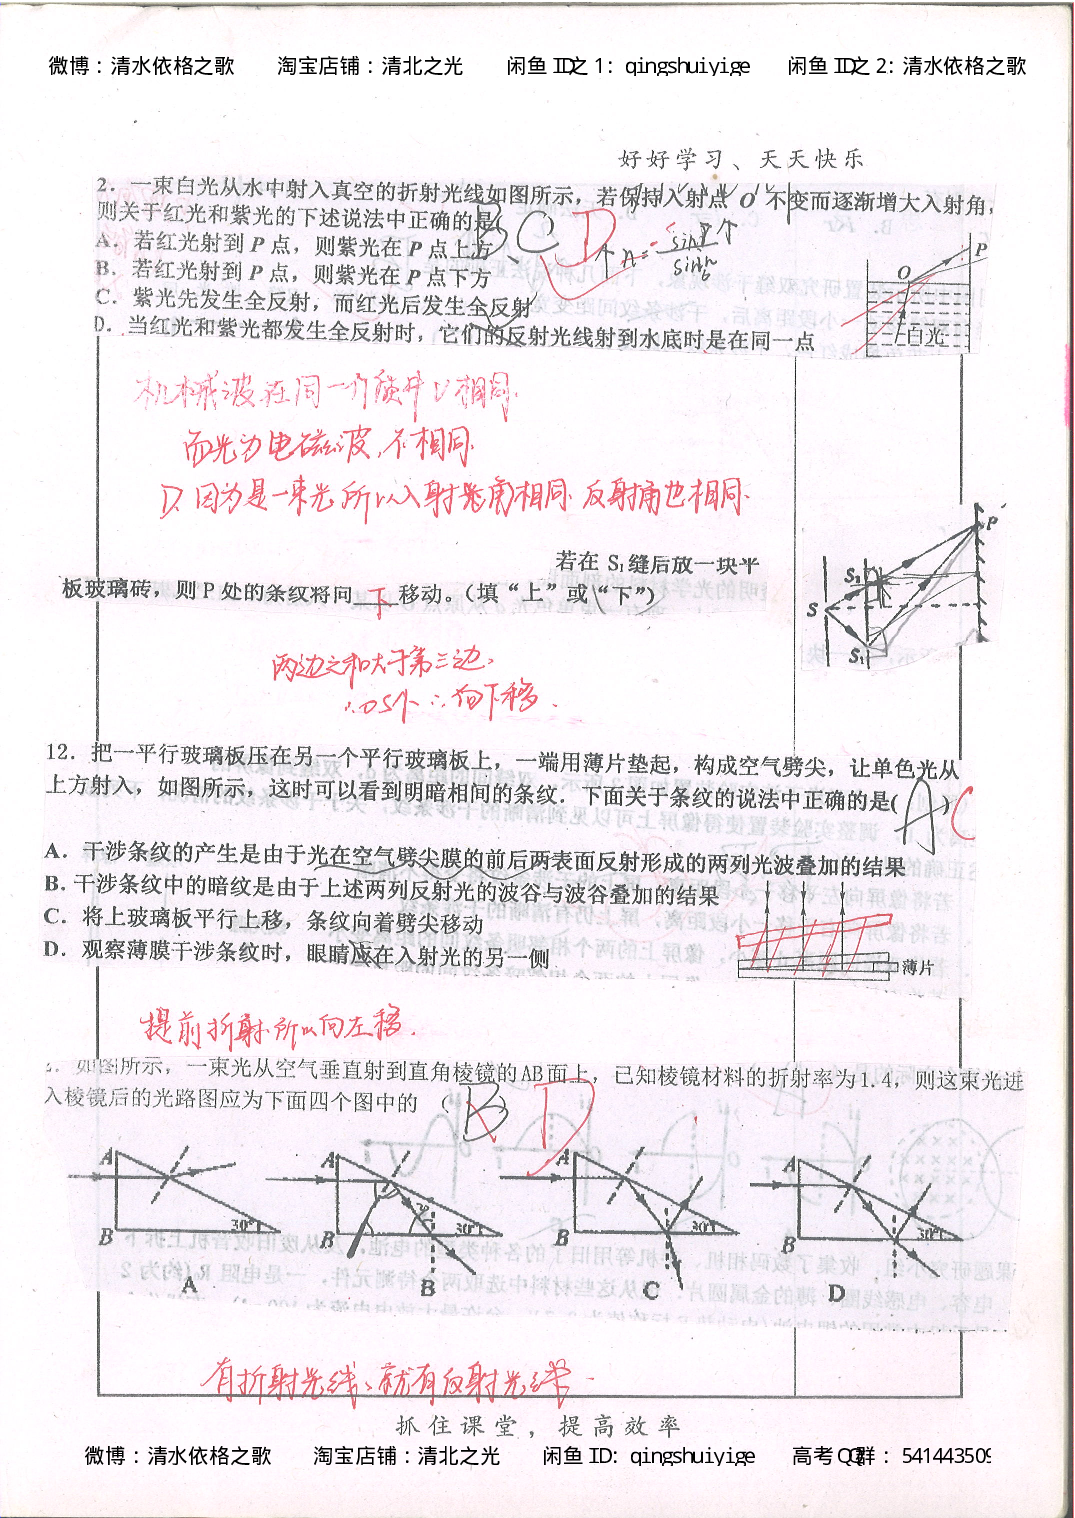 微博：清水依格之歌 淘宝店铺：清北之光 闲鱼 ID之 1：qingshuiyige 闲鱼 ID之 2：清水依格之歌
好好学习、天天快乐
2. 一束白光从水中射入真空的折射光线如图所示，若保持入射点 O 不变而逐渐增大入射角，
则关于红光和紫光的下述说法中正确的是 B、C D
A．若红光射到 P 点，则紫光在 P 点上方
B．若红光射到 P 点，则紫光在 P 点下方
C．紫光先发生全反射，而红光后发生全反射
D．当红光和紫光都发生全反射时，它们的反射光线射到水底时是在同一点
P
O
白光
机械波在同一介质中v相同.
而光为电磁波,不相同.
D.因为是一束光所以入射光角相同.反射角也相同.
若在 S₁缝后放一块平
板玻璃砖，则 P 处的条纹将向 下 移动。（填“上”或“下”）
P
S₂
S
S₁
两边之和大于第三边,
∴向下移.
12．把一平行玻璃板压在另一个平行玻璃板上，一端用薄片垫起，构成空气劈尖，让单色光从
上方射入，如图所示，这时可以看到明暗相间的条纹．下面关于条纹的说法中正确的是( A ) C
A．干涉条纹的产生是由于光在空气劈尖膜的前后两表面反射形成的两列光波叠加的结果
B．干涉条纹中的暗纹是由于上述两列反射光的波谷与波谷叠加的结果
C．将上玻璃板平行上移，条纹向着劈尖移动
D．观察薄膜干涉条纹时，眼睛应在入射光的另一侧
薄片
提前折射所以向左移.
如图所示，一束光从空气垂直射到直角棱镜的AB面上，已知棱镜材料的折射率为1.4，则这束光进
入棱镜后的光路图应为下面四个图中的 （B） D
A A A A
30° 30° 30° 30°
B B B B
A B C D
有折射光线、就有反射光线.
抓住课堂，提高效率
微博：清水依格之歌 淘宝店铺：清北之光 闲鱼 ID：qingshuiyige 高考 QQ群：541443509